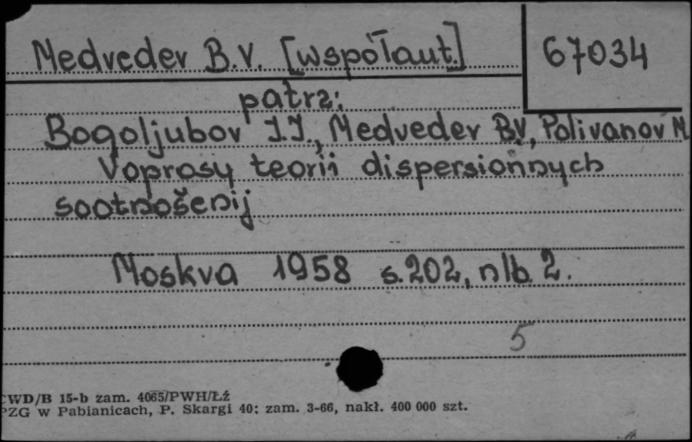 Medvedev B.V. [współaut.]
67034
patrz:
Bogoljubov I.I., Medvedev B.V., Polivanov M
Voprosy teorii dispersionnych
sootnošenij
Moskva 1958 s. 202, nlb. 2.
5
CWD/B 15-b zam. 4065/PWH/Łź
PZG w Pabianicach, P. Skargi 40; zam. 3-66, nakł. 400 000 szt.